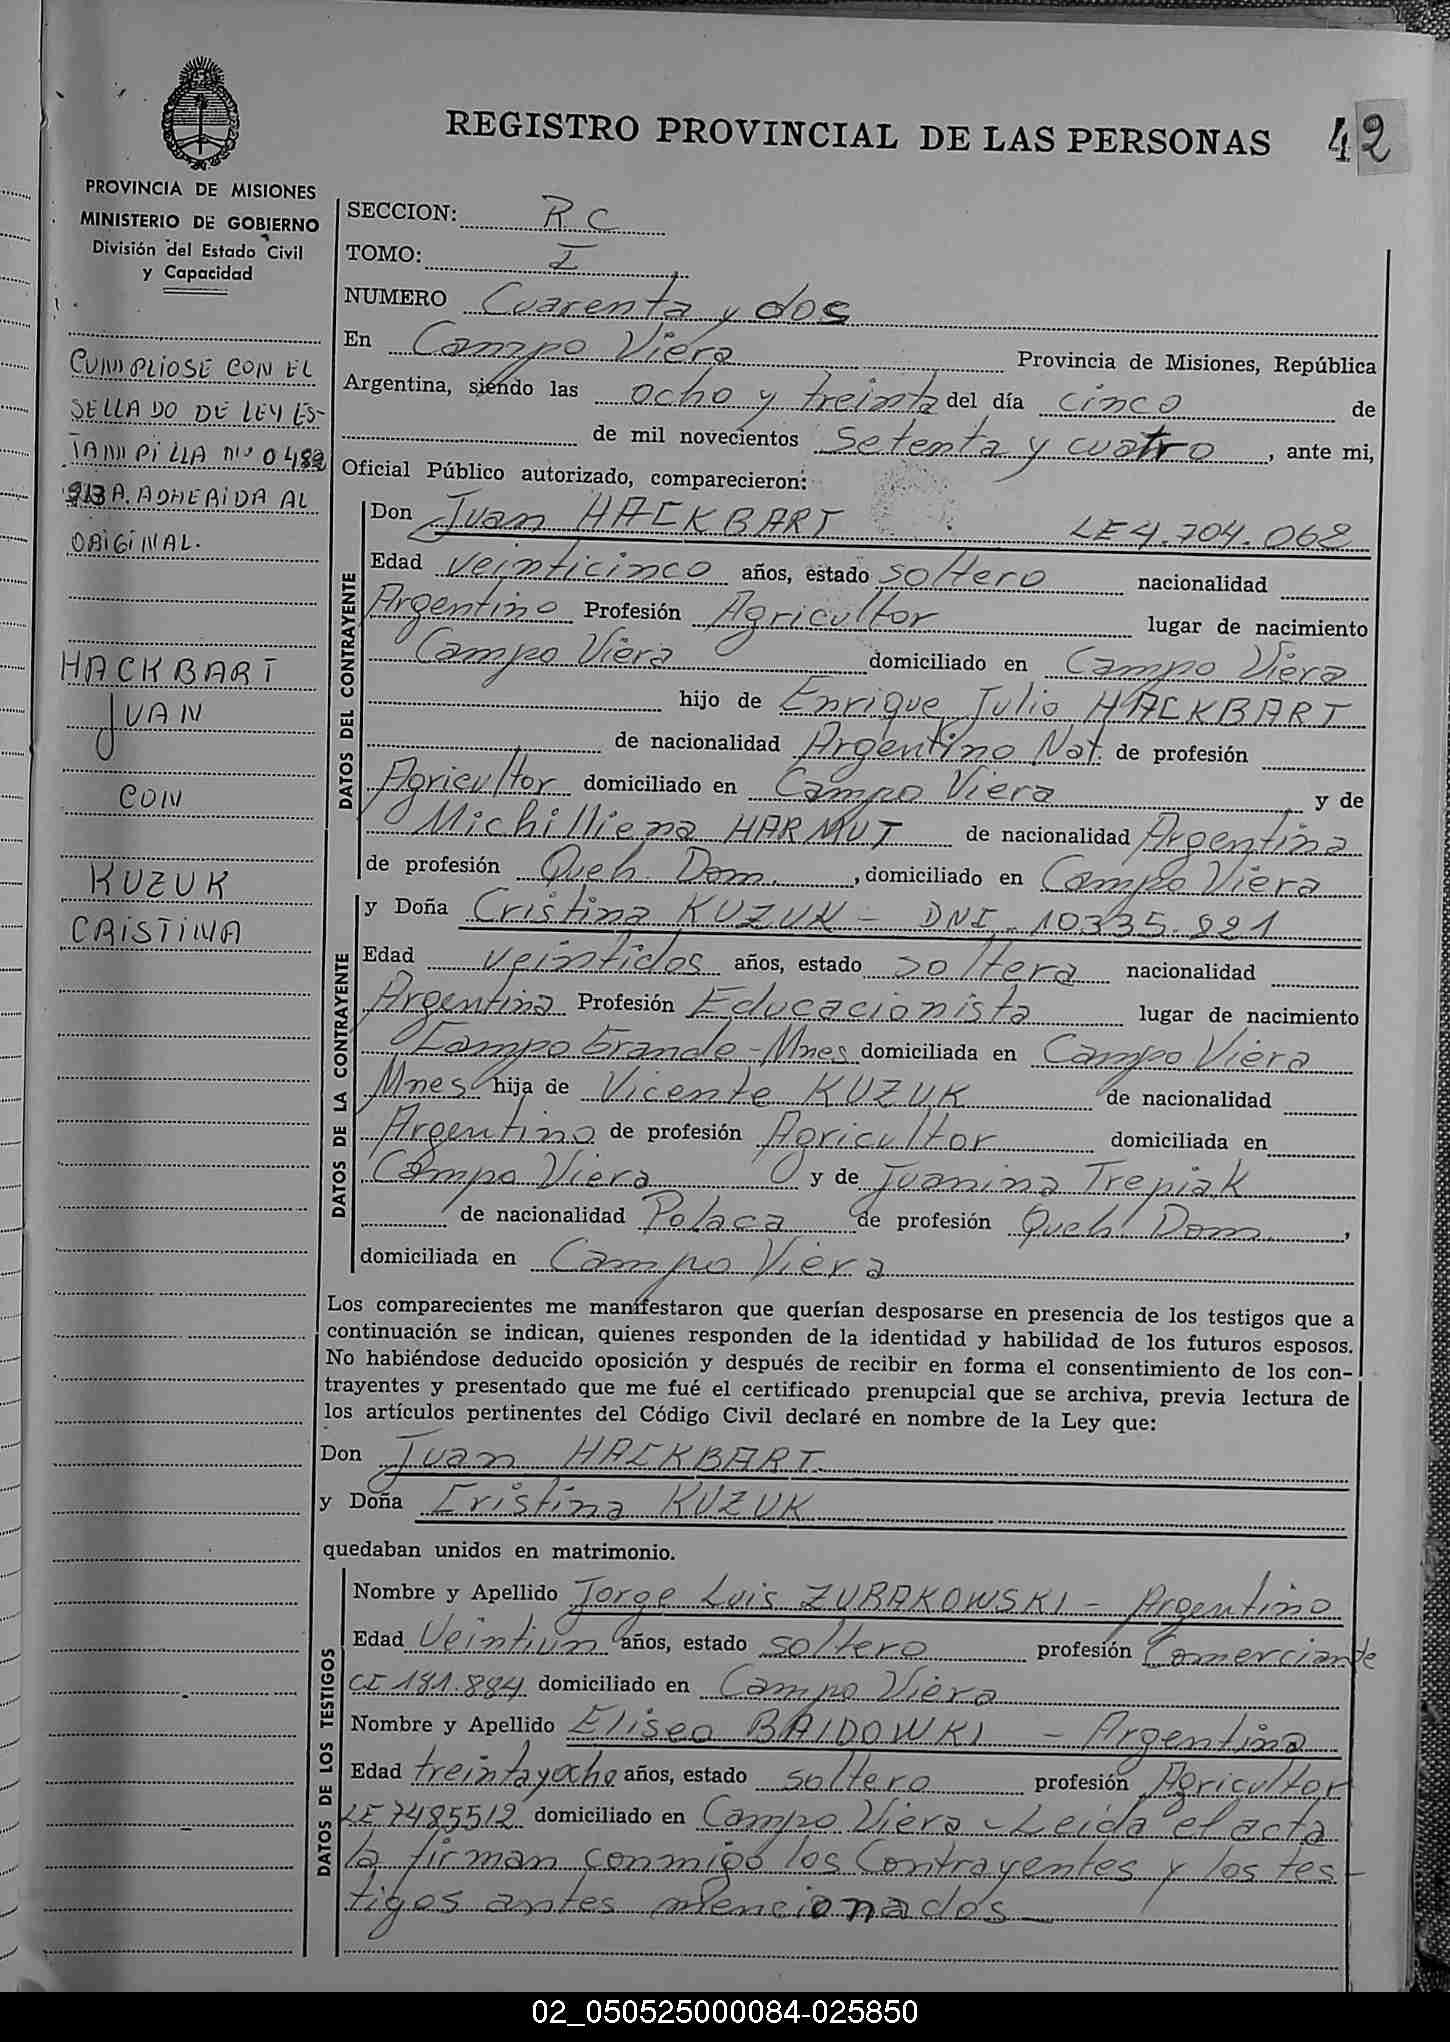 REGISTRO PROVINCIAL DE LAS PERSONAS 42
PROVINCIA DE MISIONES
MINISTERIO DE GOBIERNO
División del Estado Civil
y Capacidad
CUMPLIOSE CON EL
SELLADO DE LEY ES-
TAMPILLA Nº
ADHERIDA AL
ORIGINAL.
HACKBART
JUAN
CON
KUZUK
CRISTINA
SECCION: RC
TOMO: I
NUMERO Cuarenta y dos
En Campo Viera Provincia de Misiones, República
Argentina, siendo las ocho y treinta del día cinco de
de mil novecientos setenta y cuatro, ante mi,
Oficial Público autorizado, comparecieron:
DATOS DEL CONTRAYENTE
Don Juan HACKBART LE 4.704.062
Edad veinticinco años, estado soltero nacionalidad
Argentino Profesión Agricultor lugar de nacimiento
Campo Viera domiciliado en Campo Viera
hijo de Enrique Julio HACKBART
de nacionalidad Argentino Nat. de profesión
Agricultor domiciliado en Campo Viera y de
Michilliena HARMUT de nacionalidad Argentina
de profesión Queh. Dom., domiciliado en Campo Viera
DATOS DE LA CONTRAYENTE
y Doña Cristina KUZUK - DNI - 10335.221
Edad veintidos años, estado soltera nacionalidad
Argentina Profesión Educacionista lugar de nacimiento
Campo Grande - Mnes domiciliada en Campo Viera
Mnes hija de Vicente KUZUK de nacionalidad
Argentino de profesión Agricultor domiciliada en
Campo Viera y de Juanina Trepiak
de nacionalidad Polaca de profesión Queh. Dom.,
domiciliada en Campo Viera
Los comparecientes me manifestaron que querían desposarse en presencia de los testigos que a
continuación se indican, quienes responden de la identidad y habilidad de los futuros esposos.
No habiéndose deducido oposición y después de recibir en forma el consentimiento de los con-
trayentes y presentado que me fué el certificado prenupcial que se archiva, previa lectura de
los artículos pertinentes del Código Civil declaré en nombre de la Ley que:
Don Juan HACKBART
y Doña Cristina KUZUK
quedaban unidos en matrimonio.
DATOS DE LOS TESTIGOS
Nombre y Apellido Jorge Luis ZURAKOWSKI - Argentino
Edad Veintiun años, estado soltero profesión Comerciante
CI 181.884 domiciliado en Campo Viera
Nombre y Apellido Eliseo BAIDOWKI - Argentina
Edad treintayocho años, estado soltero profesión Agricultor
LE 7485512 domiciliado en Campo Viera - Leída el acta
la firman conmigo los Contrayentes y los tes-
tigos antes mencionados
02_050525000084-025850